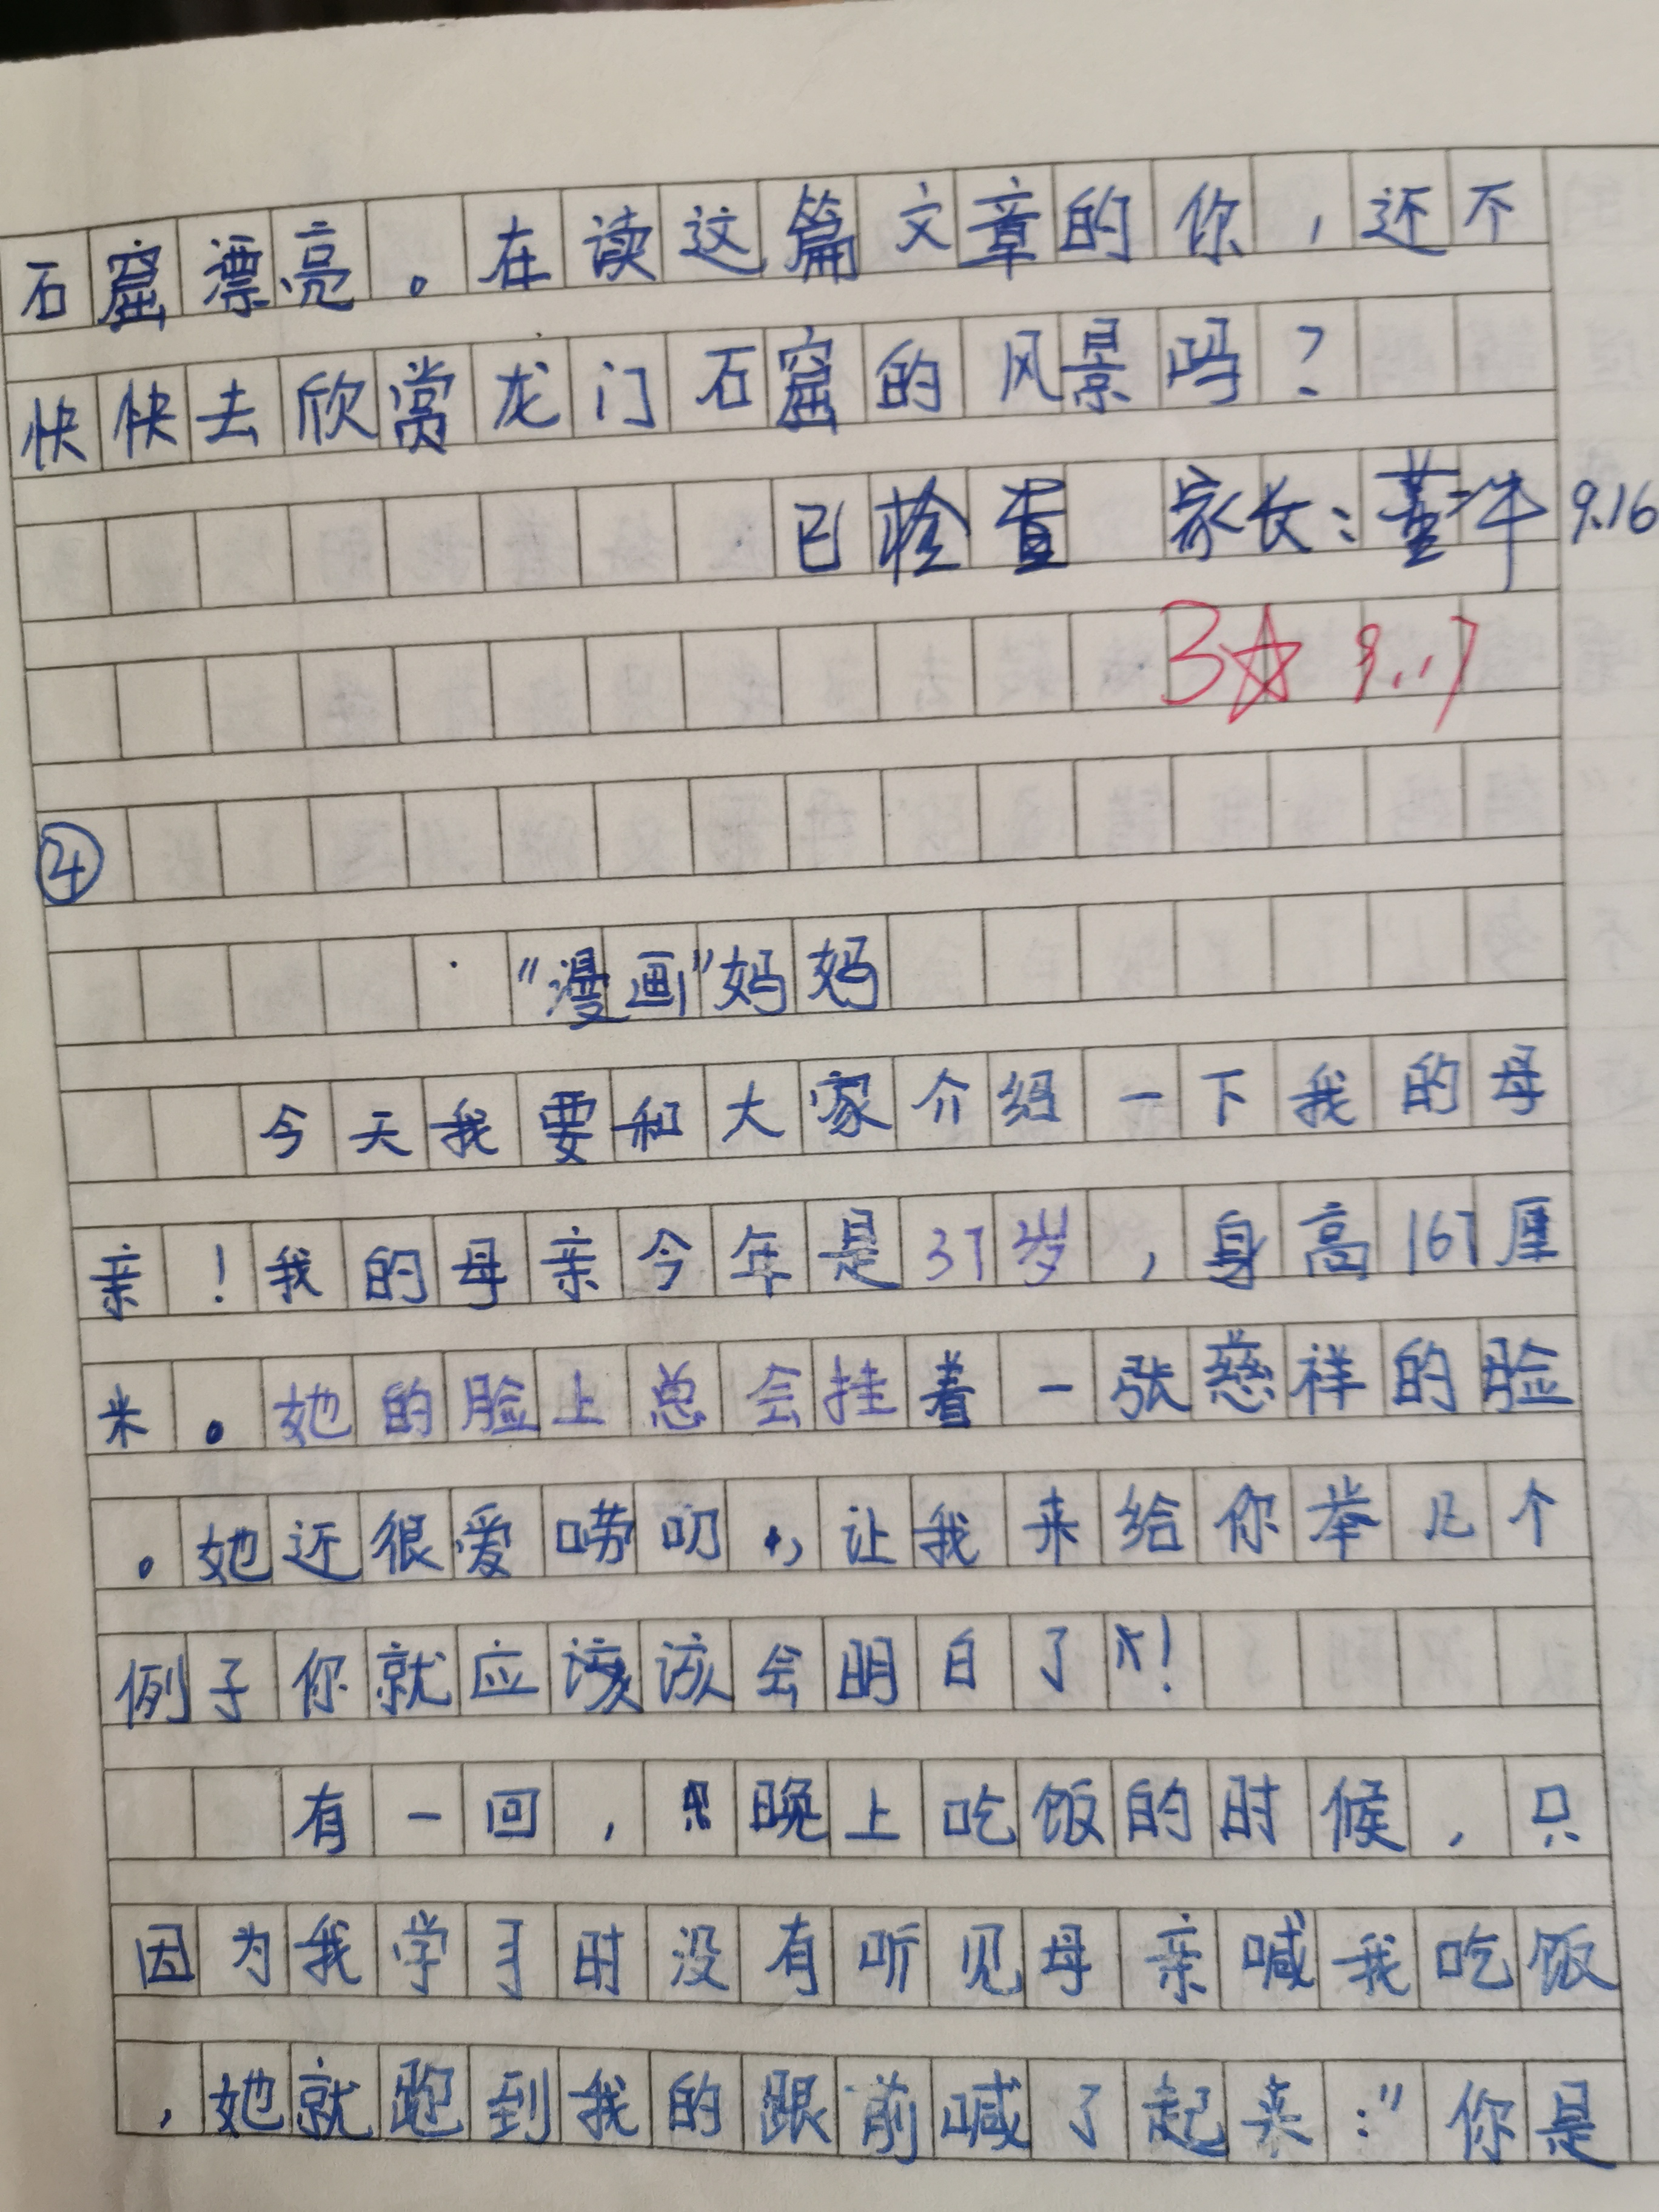 石窟漂亮。在读这篇文章的你，还不
快快去欣赏龙门石窟的风景吗？
已检查 家长：董 9.16
3☆ 9.17
④
“漫画”妈妈
今天我要和大家介绍一下我的母
亲！我的母亲今年是37岁，身高167厘
米。她的脸上总会挂着一张慈祥的脸
。她还很爱唠叨，让我来给你举几个
例子你就应该该会明白了！
有一回，晚上吃饭的时候，只
因为我学习时没有听见母亲喊我吃饭
，她就跑到我的跟前喊了起来：“你是